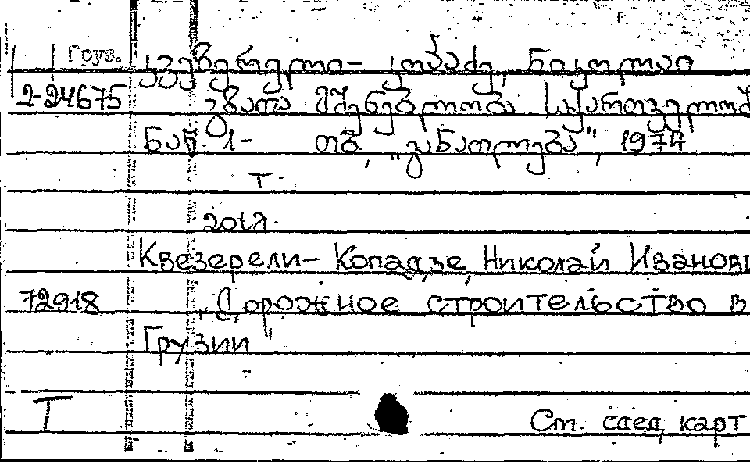 Груз. კვეზერელი- კოპაძე, ნიკოლაი
2-24675 გზათა მშენებლობა საქართველოშ
ნაწ. 1- თბ., "განათლება", 1974
т.
201я.
Квезерели- Копадзе, Николай Иванови
72918 "Дорожное строительство в
Грузии"
T См. след. карт